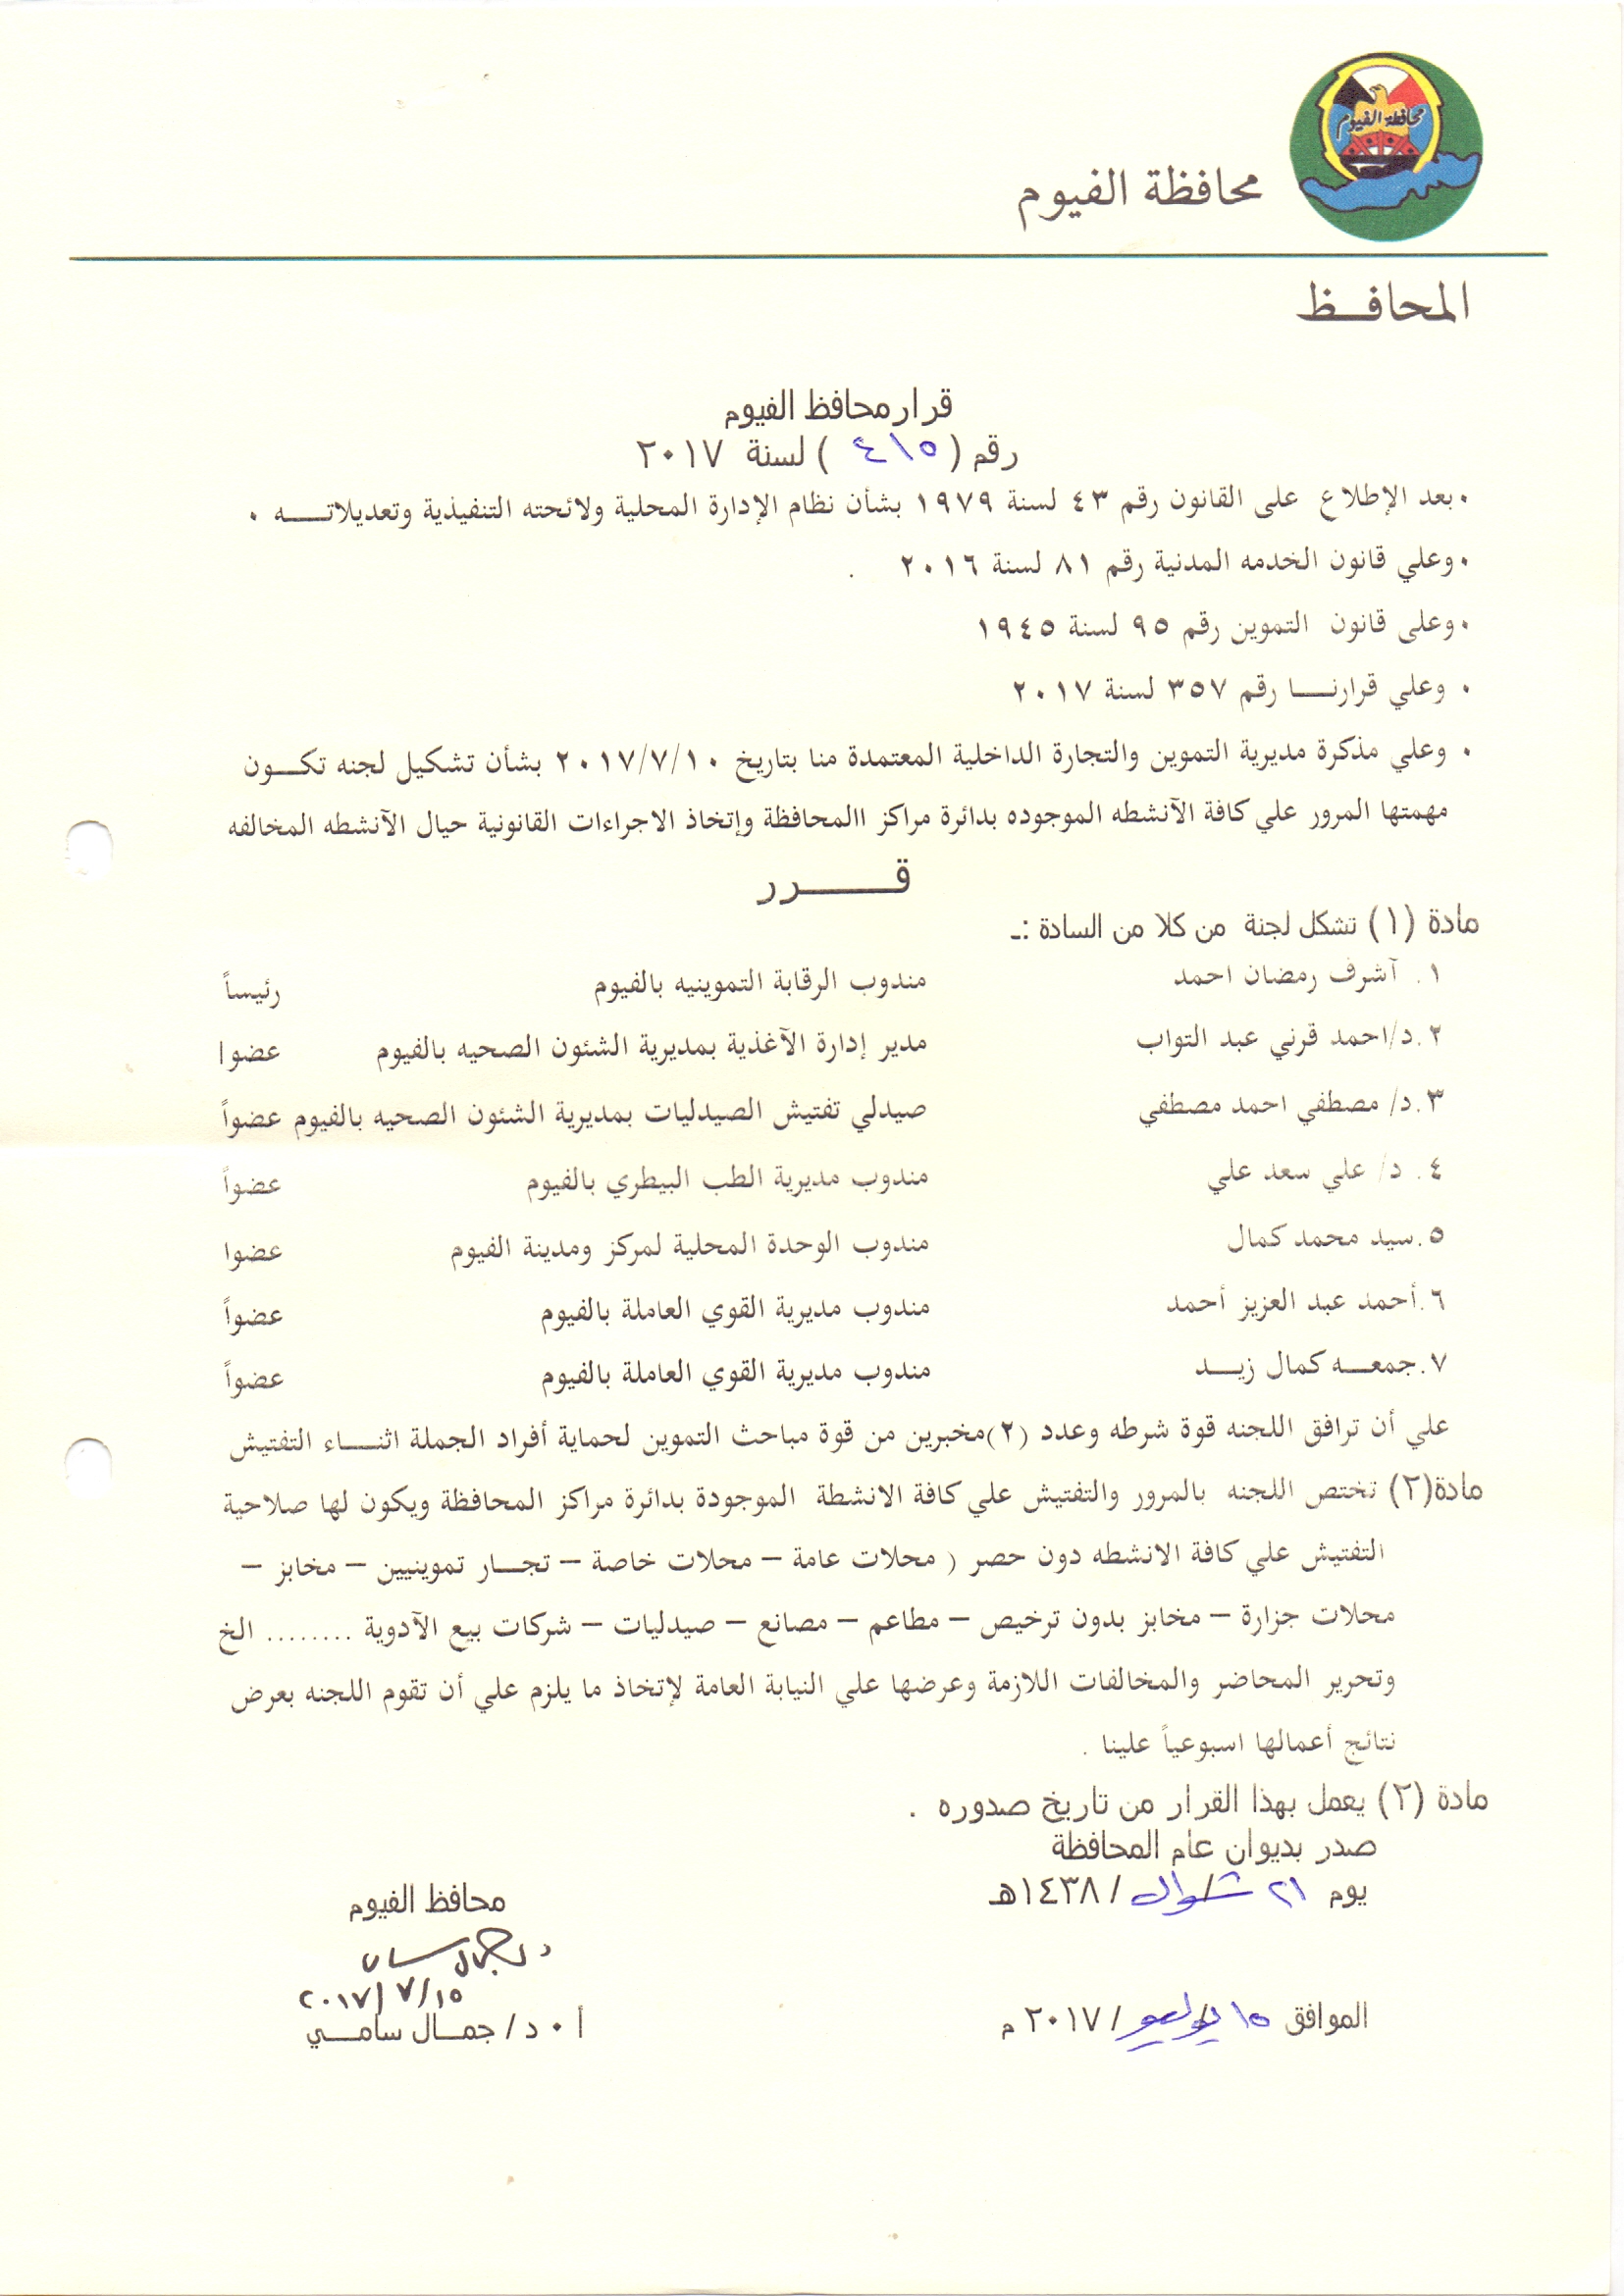 محافظة الفيوم
محافظة الفيوم
المحافــظ
قرار محافظ الفيوم
رقم ( ٤١٥ ) لسنة ٢٠١٧
٠بعد الإطلاع على القانون رقم ٤٣ لسنة ١٩٧٩ بشأن نظام الإدارة المحلية ولائحته التنفيذية وتعديلاتــه ٠
٠وعلي قانون الخدمه المدنية رقم ٨١ لسنة ٢٠١٦ .
٠وعلى قانون التموين رقم ٩٥ لسنة ١٩٤٥
٠ وعلي قرارنــا رقم ٣٥٧ لسنة ٢٠١٧
٠ وعلي مذكرة مديرية التموين والتجارة الداخلية المعتمدة منا بتاريخ ٢٠١٧/٧/١٠ بشأن تشكيل لجنه تكــون
مهمتها المرور علي كافة الآنشطه الموجوده بدائرة مراكز االمحافظة وإتخاذ الاجراءات القانونية حيال الآنشطه المخالفه
قـــــرر
مادة (١) تشكل لجنة من كلا من السادة :ـ
١. آشرف رمضان احمد مندوب الرقابة التموينيه بالفيوم رئيساً
٢.د/احمد قرني عبد التواب مدير إدارة الآغذية بمديرية الشئون الصحيه بالفيوم عضوا
٣.د/ مصطفي احمد مصطفي صيدلي تفتيش الصيدليات بمديرية الشئون الصحيه بالفيوم عضواً
٤. د/ علي سعد علي مندوب مديرية الطب البيطري بالفيوم عضواً
٥.سيد محمد كمال مندوب الوحدة المحلية لمركز ومدينة الفيوم عضوا
٦.أحمد عبد العزيز أحمد مندوب مديرية القوي العاملة بالفيوم عضواً
٧.جمعــه كمال زيــد مندوب مديرية القوي العاملة بالفيوم عضواً
علي أن ترافق اللجنه قوة شرطه وعدد (٢)مخبرين من قوة مباحث التموين لحماية أفراد الجملة اثنــاء التفتيش
مادة(٢) تختص اللجنه بالمرور والتفتيش علي كافة الانشطة الموجودة بدائرة مراكز المحافظة ويكون لها صلاحية
التفتيش علي كافة الانشطه دون حصر ( محلات عامة – محلات خاصة – تجــار تموينيين – مخابز –
محلات جزارة – مخابز بدون ترخيص – مطاعم – مصانع – صيدليات – شركات بيع الآدوية ........ الخ
وتحرير المحاضر والمخالفات اللازمة وعرضها علي النيابة العامة لإتخاذ ما يلزم علي أن تقوم اللجنه بعرض
نتائج أعمالها اسبوعياً علينا .
مادة (٢) يعمل بهذا القرار من تاريخ صدوره .
صدر بديوان عام المحافظة
يوم ٢١ شوال / ١٤٣٨هـ
محافظ الفيوم
د. جمال سامي
٢٠١٧/٧/١٥
الموافق ١٥ يوليو / ٢٠١٧ م
أ ٠ د/ جمــال سامــي